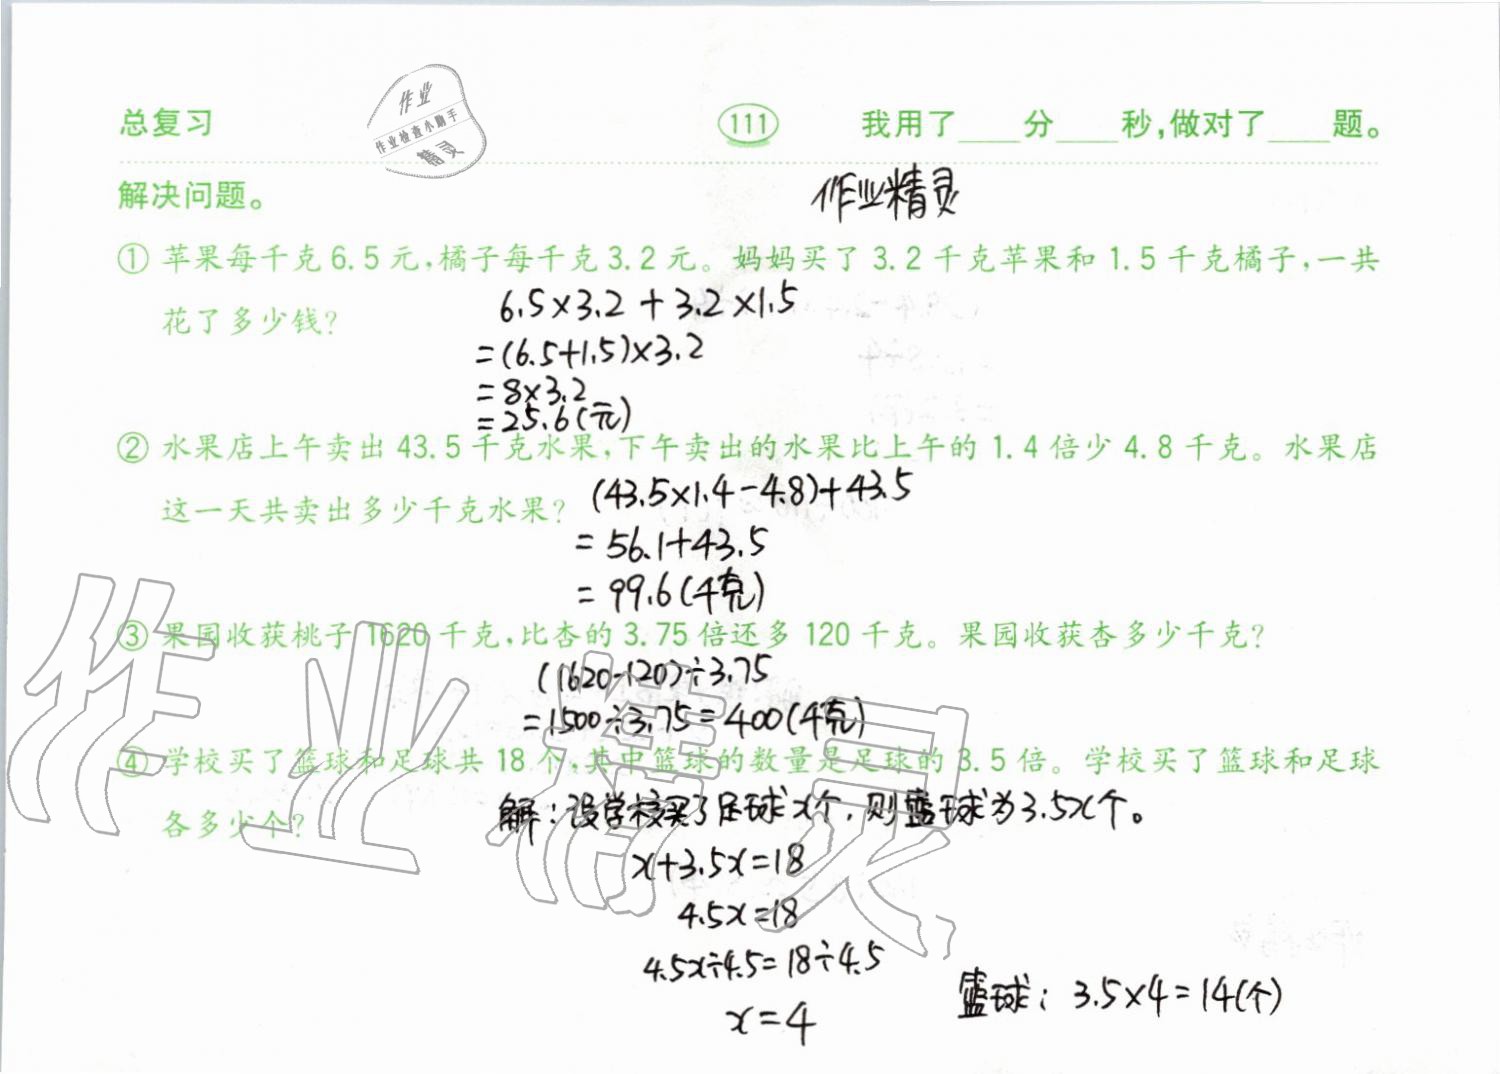 作业
作业检查小助手
精灵
总复习 111 我用了____分____秒,做对了____题。
解决问题。
作业精灵
① 苹果每千克6.5元,橘子每千克3.2元。妈妈买了3.2千克苹果和1.5千克橘子,一共
花了多少钱?
6.5×3.2+3.2×1.5
=(6.5+1.5)×3.2
=8×3.2
=25.6(元)
② 水果店上午卖出43.5千克水果,下午卖出的水果比上午的1.4倍少4.8千克。水果店
这一天共卖出多少千克水果?
(43.5×1.4-4.8)+43.5
=56.1+43.5
=99.6(千克)
③ 果园收获桃子1620千克,比杏的3.75倍还多120千克。果园收获杏多少千克?
(1620-120)÷3.75
=1500÷3.75=400(千克)
④ 学校买了篮球和足球共18个,其中篮球的数量是足球的3.5倍。学校买了篮球和足球
各多少个?
解:设学校买了足球x个,则篮球为3.5x个。
x+3.5x=18
4.5x=18
4.5x÷4.5=18÷4.5
x=4
篮球:3.5×4=14(个)
作业精灵